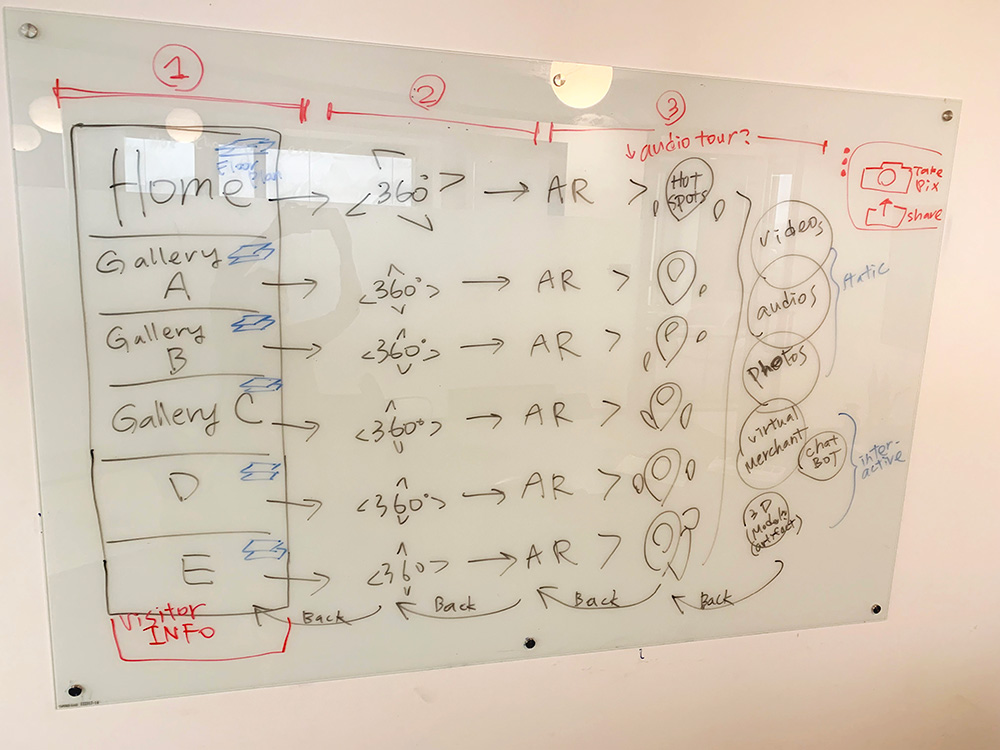 1
2
3
↓ audio tour?
Take
Pix
share
Home
Floor
Plan
→ <360°> → AR >
Hot
spots
Gallery
A
→ <360°> → AR >
Gallery
B
→ <360°> → AR >
Gallery C
→ <360°> → AR >
D
→ <360°> → AR >
E
→ <360°> → AR >
videos
audios
photos
static
virtual
merchant
chat
BOT
inter-
active
3D
Models
(artifact)
Back
Back
Back
Back
Visitor
INFO